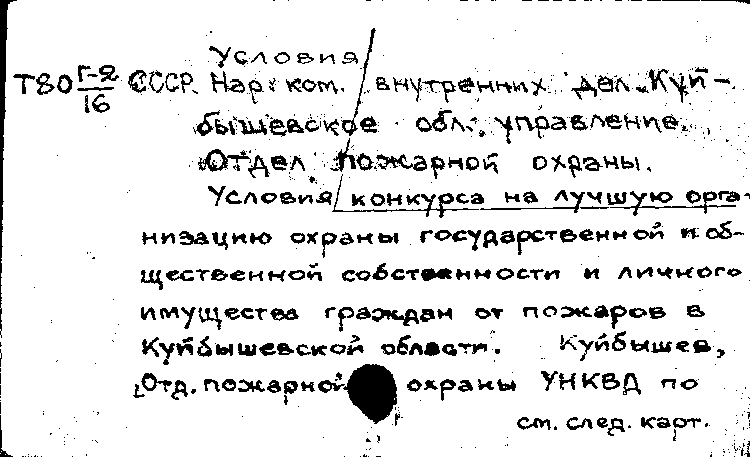 Условия
Т80 Г-2/16 СССР. Нар. ком. внутренних дел. Куй-
бышевское обл. управление.
Отдел пожарной охраны.
Условия конкурса на лучшую орга-
низацию охраны государственной и об-
щественной собственности и личного
имущества граждан от пожаров в
Куйбышевской области. Куйбышев,
Отд. пожарной охраны УНКВД по
см. след. карт.